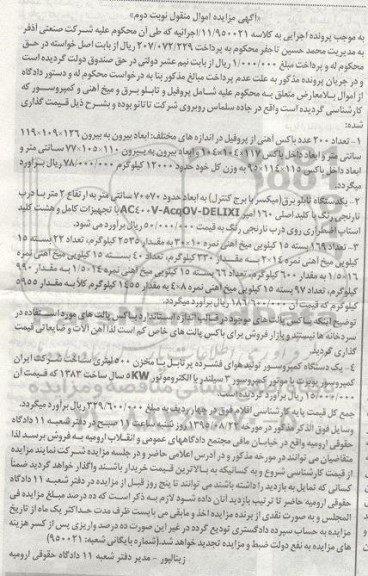 «آگهی مزایده اموال منقول نوبت دوم»
به موجب پرونده اجرایی به کلاسه ۱۱/۹۵۰۰۲۱/اجرائیه که طی آن محکوم علیه شرکت صنعتی آذفر
به مدیریت محمد حسین تاجفر محکوم به پرداخت ۲۰۷/۰۷۲/۲۳۹ ریال از بابت اصل خواسته در حق
محکوم له و پرداخت مبلغ ۱/۰۰۰/۰۰۰ ریال از بابت نیم عشر دولتی در حق صندوق دولت گردیده است
و در جریان پرونده مذکور به علت عدم پرداخت مبالغ مذکور بنا به درخواست محکوم له و دستور دادگاه
از اموال بلامعارض متعلق به محکوم علیه شامل پروفیل و تابلو برق و میخ آهنی و کمپرسور که
کارشناسی گردیده است واقع در جاده سلماس روبروی شرکت تاتائو بوده و بشرح ذیل قیمت گذاری
شده:
۱- تعداد ۲۰۰ عدد باکس آهنی از پروفیل در اندازه های مختلف: ابعاد بیرون به بیرون ۱۳۶-۱۰۹-۱۱۹
سانتی متر و ابعاد داخل باکس ۱۱۷-۱۰۴-۱۰۴ و ابعاد بیرون به بیرون ۱۱۰-۱۰۵-۷۷ سانتی متر و
ابعاد داخل باکس ۱۱۵-۱۱۴-۹۵ به وزن کل خود حدود ۱۲۰۰۰ کیلوگرم ۷۸/۰۰۰/۰۰۰ ریال برآورد
میگردد.
۲- یکدستگاه تابلو برق (میکسر یا برج کنترل) به ابعاد حدود ۷۰×۷۰ سانتی متر به ارتفاع ۲ متر با درب
نارنجی رنگ با کلید اصلی ۱۶۰ آمپر AC۴۰۰V-AcqOV-DELIXI با تجهیزات کامل و هشت کلید
استاپ اضطراری روی درب نارنجی رنگ به قیمت ۵۰/۰۰۰/۰۰۰ ریال برآورد می شود.
۳- تعداد ۱۶۹ بسته ۱۵ کیلویی میخ آهنی نمره ۱۰×۳۰ به مقدار ۲۵۳۵ کیلوگرم، تعداد ۲۲ بسته ۱۵
کیلویی میخ آهنی نمره ۱۴×۲ به مقدار ۳۳۰ کیلوگرم، تعداد ۴۰ بسته ۱۵ کیلویی میخ آهنی نمره
۱/۵×۱۶ به مقدار ۶۰۰ کیلوگرم، تعداد ۶۶ بسته ۱۵ کیلویی میخ آهنی نمره ۱/۵×۱۴ به مقدار ۹۹۰
کیلوگرم، تعداد ۹۷ بسته ۱۵ کیلویی میخ آهنی نمره ۸×۴۰ به مقدار ۱۴۵۵ کیلوگرم کلا به مقدار ۵۹۵۵
کیلوگرم که قیمت آن ۱۸۶/۶۰۰/۰۰۰ ریال برآورد میگردد.
توضیح اینکه باکس پالت های موجود در قالب اندازه استاندارد باکس پالت های مورد استفاده در
سردخانه ها نیستند و بازار فروش برای باکس پالت های خاص کم است لذا آهن آلات و ضایعاتی قیمت
گذاری گردید.
۴- یک دستگاه کمپرسور تولید هوای فشرده پرتابل با مخزن ۵۰۰ لیتری ساخت شرکت ایران
کمپرسور یونیت با موتور کمپرسور ۳ سیلندر با الکتروموتور KW۵ سال ساخت ۱۳۸۳ که قیمت آن
۱۵/۰۰۰/۰۰۰ ریال برآورد گردیده است.
جمع کل قیمت پایه کارشناسی اقلام فوق در چهار ردیف به مبلغ ۳۲۹/۶۰۰/۰۰۰ ریال برآورد میگردد.
وسایل فوق الذکر مذکور در مورخه ۱۳۹۵/۰۸/۲۲ روز شنبه ساعت ۱۱ صبح در دفتر شعبه ۱۱ دادگاه
حقوقی ارومیه واقع در خیابان مافی مجتمع دادگاههای عمومی و انقلاب ارومیه به فروش برسد لذا
متقاضیان می توانند در مورخه مذکور و در آدرس اعلامی حاضر و در جلسه مزایده شرکت نمایند مزایده
از قیمت کارشناسی شروع و به کسانیکه به بالاترین قیمت خریدار باشند واگذار خواهد گردید ضمناً
کسانی که تمایل به بازدید را داشته باشند می توانند تا پنج روز قبل از مزایده در دفتر شعبه ۱۱ دادگاه
حقوقی ارومیه حاضر تا ترتیب بازدید آنان داده شود لازم به ذکر است که ده درصد مبلغ مزایده فی
المجلس و به صورت نقدی از برنده مزایده اخذ و مابقی می بایست ظرف مدت حداکثر یک ماه از تاریخ
مزایده به حساب سپرده دادگستری تودیع گردد در غیر این صورت ده درصد واریزی پس از کسر هزینه
های مزایده به نفع دولت ضبط و مزایده تجدید خواهد شد. (شماره بایگانی شعبه: ۹۵۰۰۲۱)
زینالپور - مدیر دفتر شعبه ۱۱ دادگاه حقوقی ارومیه